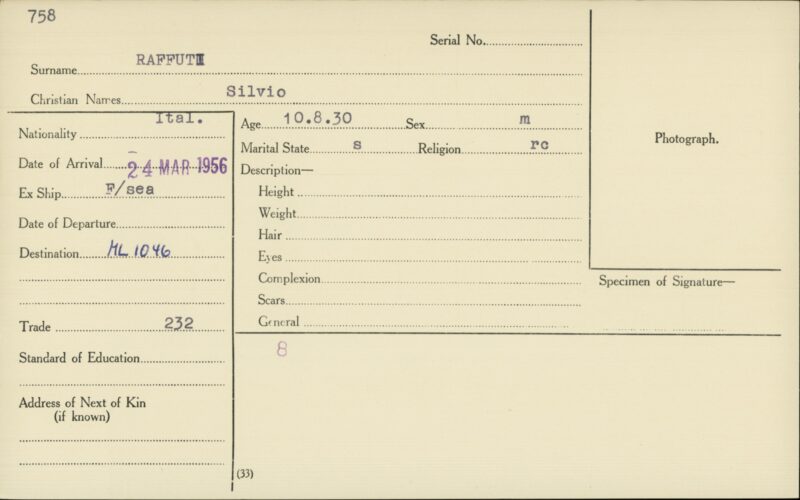 758
Serial No.
Surname RAFFUTI
Christian Names Silvio
Nationality Ital.
Age 10.8.30 Sex m
Photograph.
Date of Arrival 24 MAR 1956
Marital State s Religion rc
Ex Ship F/sea
Description—
Height
Weight
Date of Departure
Hair
Destination ML 1046
Eyes
Complexion
Specimen of Signature—
Scars
Trade 232
General
Standard of Education
8
Address of Next of Kin
(if known)
(33)